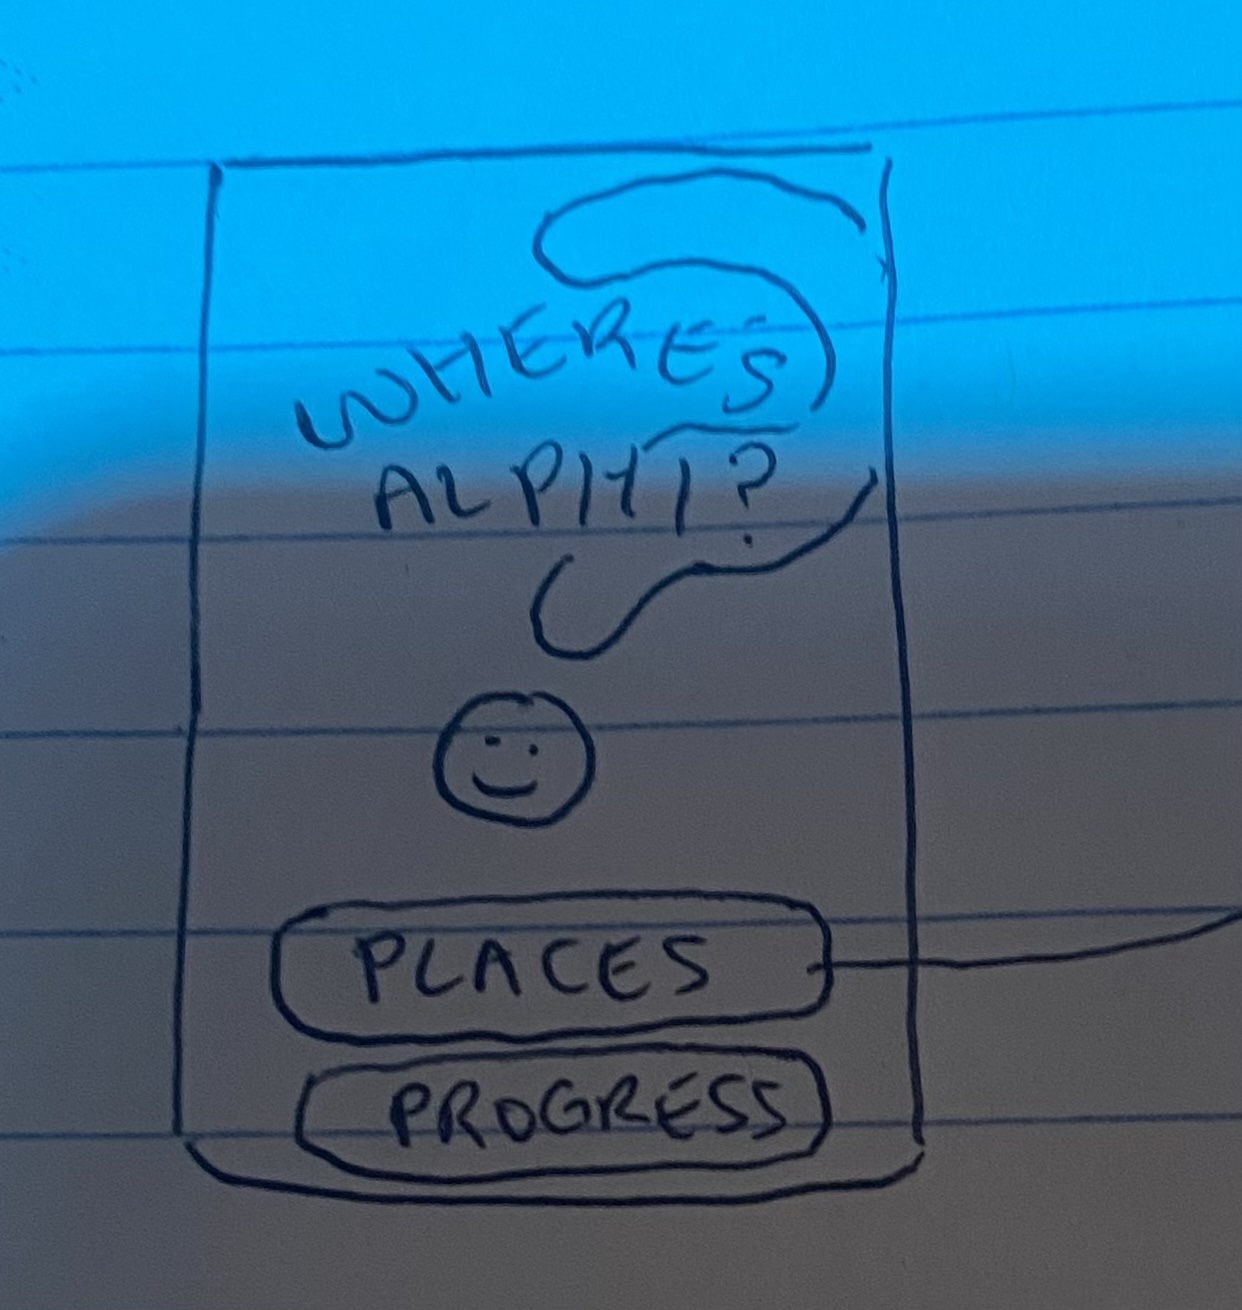 WHERES
ALPHI?
PLACES
PROGRESS